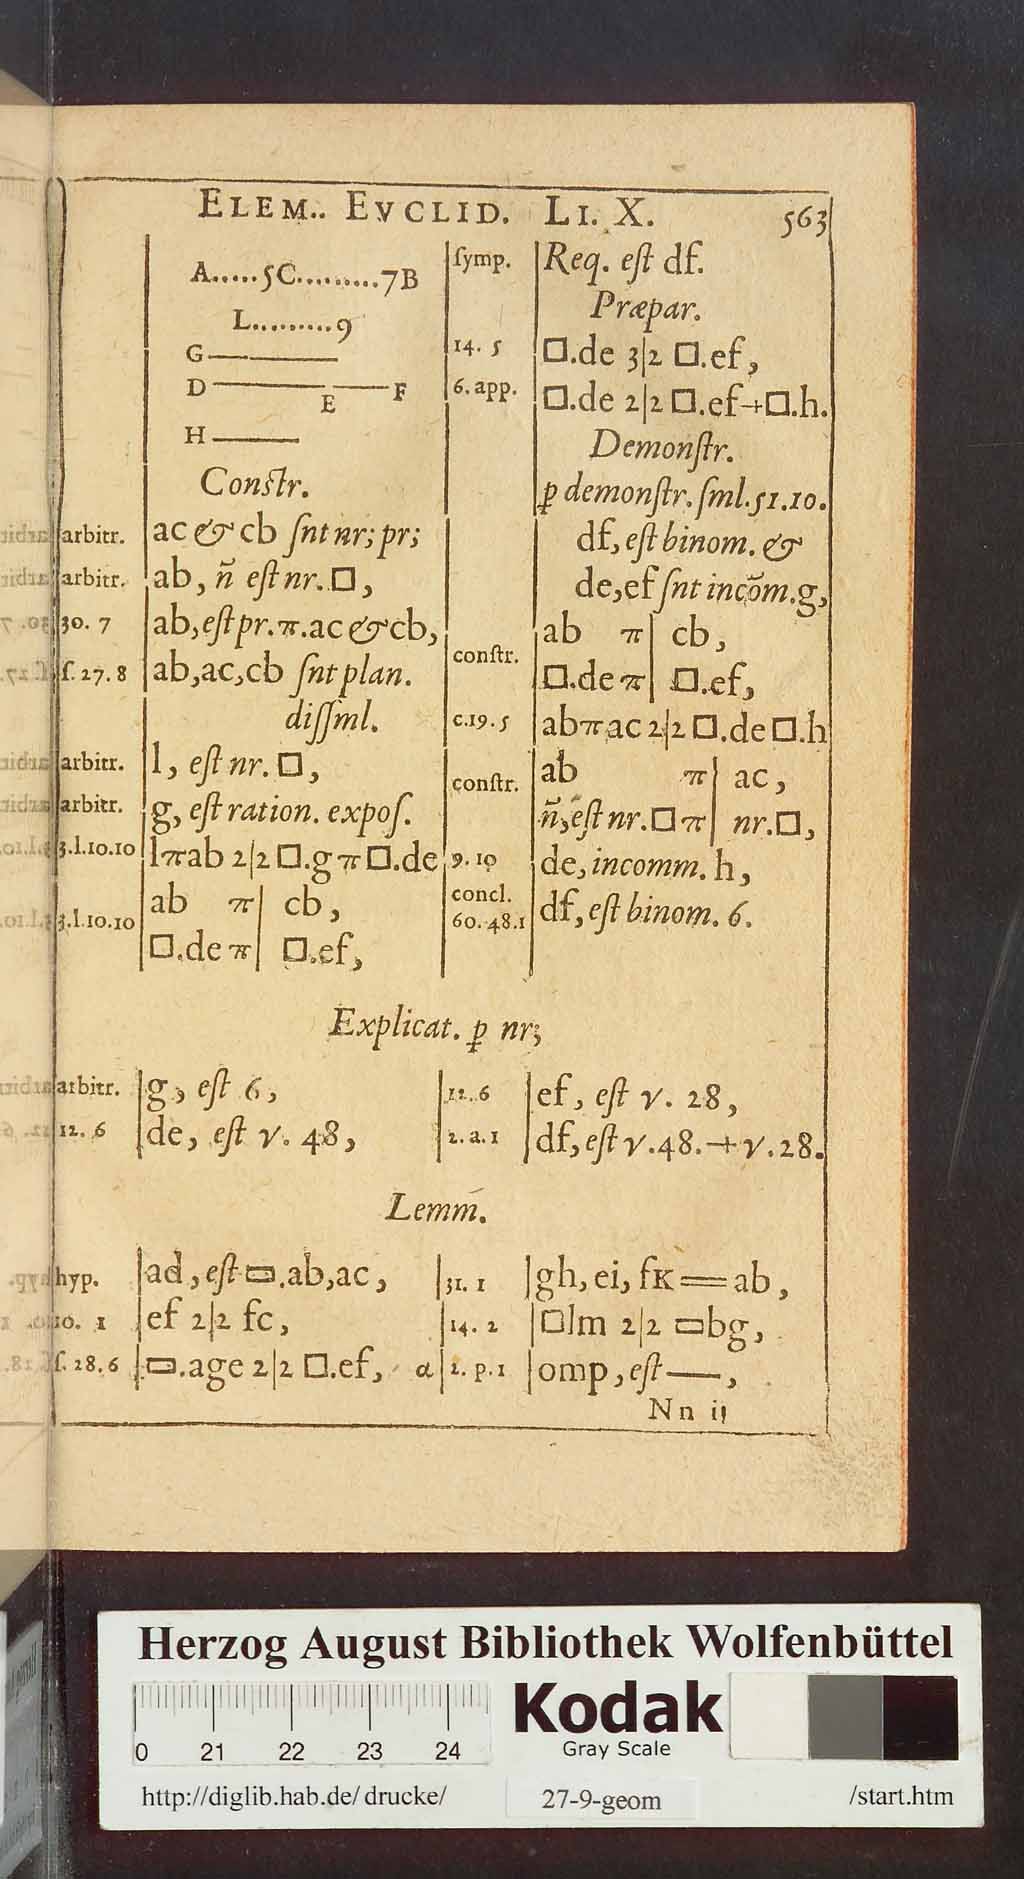 ELEM.. EVCLID. LI. X. 563
A.....5C.........7B
L.........9
G
D E F
H
Constr.
arbitr. ac & cb ſnt nr; pr;
arbitr. ab, n̄ eſt nr. □,
30. 7 ab, eſt pr. π. ac & cb,
ſ. 27. 8 ab, ac, cb ſnt plan.
diſſml.
arbitr. l, eſt nr. □,
arbitr. g, eſt ration. expoſ.
3.l.10.10 lπab 2|2 □.g π □.de
ab π| cb,
3.l.10.10
□.de π| □.ef,
ſymp. Req. eſt df.
Præpar.
14. 5 □.de 3|2 □.ef,
6. app. □.de 2|2 □.ef+□.h.
Demonſtr.
ꝑ demonſtr. ſml. 51. 10.
df, eſt binom. &
de, ef ſnt incom̄. g,
ab π| cb,
conſtr.
□.de π| □.ef,
c.19. 5 abπac 2|2 □.de□.h
ab π| ac,
conſtr.
n̄, eſt nr. □ π| nr. □,
9. 10 de, incomm. h,
concl.
60. 48. 1 df, eſt binom. 6.
Explicat. ꝑ nr;
arbitr. g, eſt 6,
12. 6 de, eſt v. 48,
12. 6 ef, eſt v. 28,
2. a. 1 df, eſt v. 48. + v. 28.
Lemm̄.
hyp. ad, eſt ▭. ab, ac,
10. 1 ef 2|2 fc,
ſ. 28. 6 ▭. age 2|2 □. ef, α
31. 1 gh, ei, fK == ab,
14. 2 □lm 2|2 ▭bg,
2. p. 1 omp, eſt —,
Nn ij
Herzog August Bibliothek Wolfenbüttel
0 21 22 23 24
Kodak
Gray Scale
http://diglib.hab.de/drucke/ 27-9-geom /start.htm